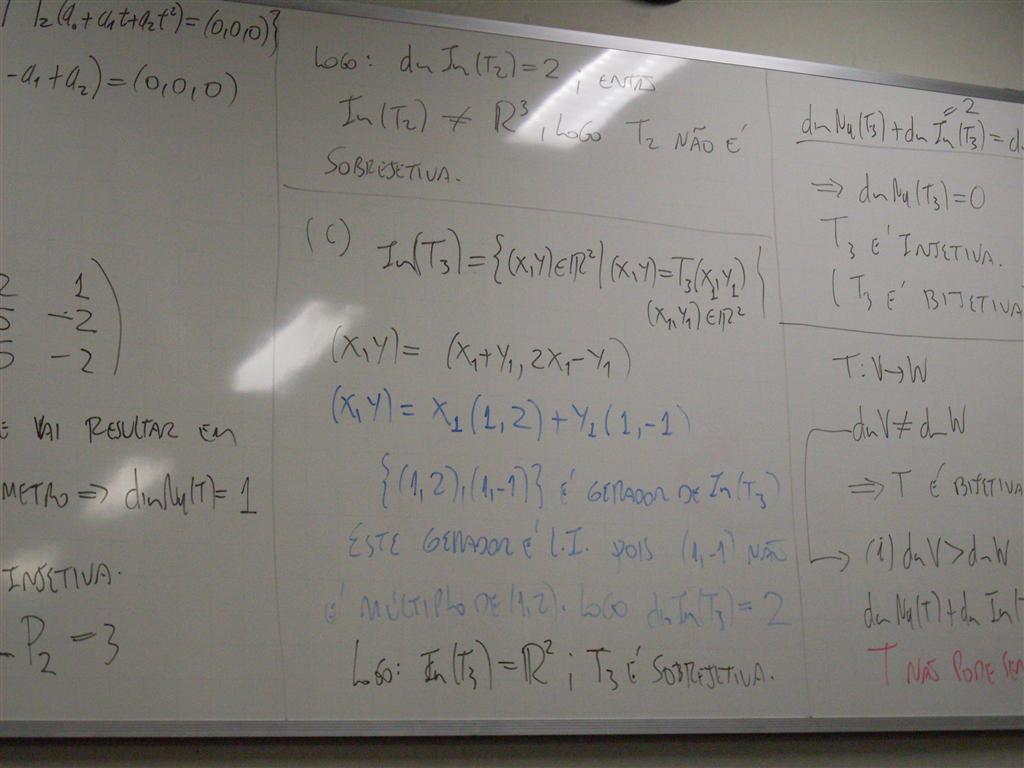 T₂(a₀+a₁t+a₂t²)=(0,0,0)}
-a₁+a₂)=(0,0,0)
2 1
5 -2
5 -2
E VAI RESULTAR EM
METRO ⇒ dim Nu(T)=1
INJETIVA.
P₂ = 3
LOGO: dim Im(T₂)=2 ; ENTÃO
Im(T₂) ≠ ℝ³, LOGO T₂ NÃO É
SOBREJETIVA.
(C) Im(T₃)={(x,y)∈ℝ² | (x,y)=T₃(x₁,y₁)
(x₁,y₁)∈ℝ² }
(x,y)= (x₁+y₁, 2x₁-y₁)
(x,y)= x₁(1,2)+y₁(1,-1)
{(1,2),(1,-1)} É GERADOR DE Im(T₃)
ESTE GERADOR É L.I. POIS (1,-1) NÃO
É MÚLTIPLO DE (1,2). LOGO dim Im(T₃)=2
LOGO: Im(T₃)=ℝ² ; T₃ É SOBREJETIVA.
=2
dim Nu(T₃)+dim Im(T₃)=d
⇒ dim Nu(T₃)=0
T₃ É INJETIVA.
(T₃ É BIJETIVA
T:V→W
dim V ≠ dim W
⇒ T É BIJETIVA
(i) dim V > dim W
dim Nu(T)+dim Im(T
T NÃO PODE SER